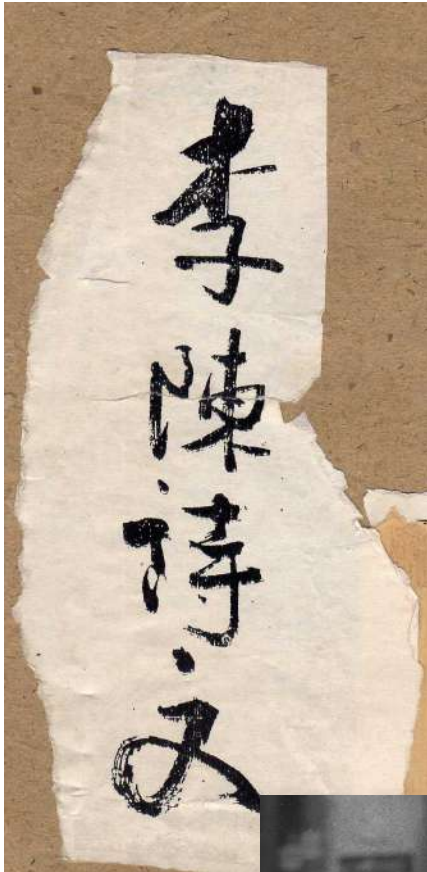 李陳詩文